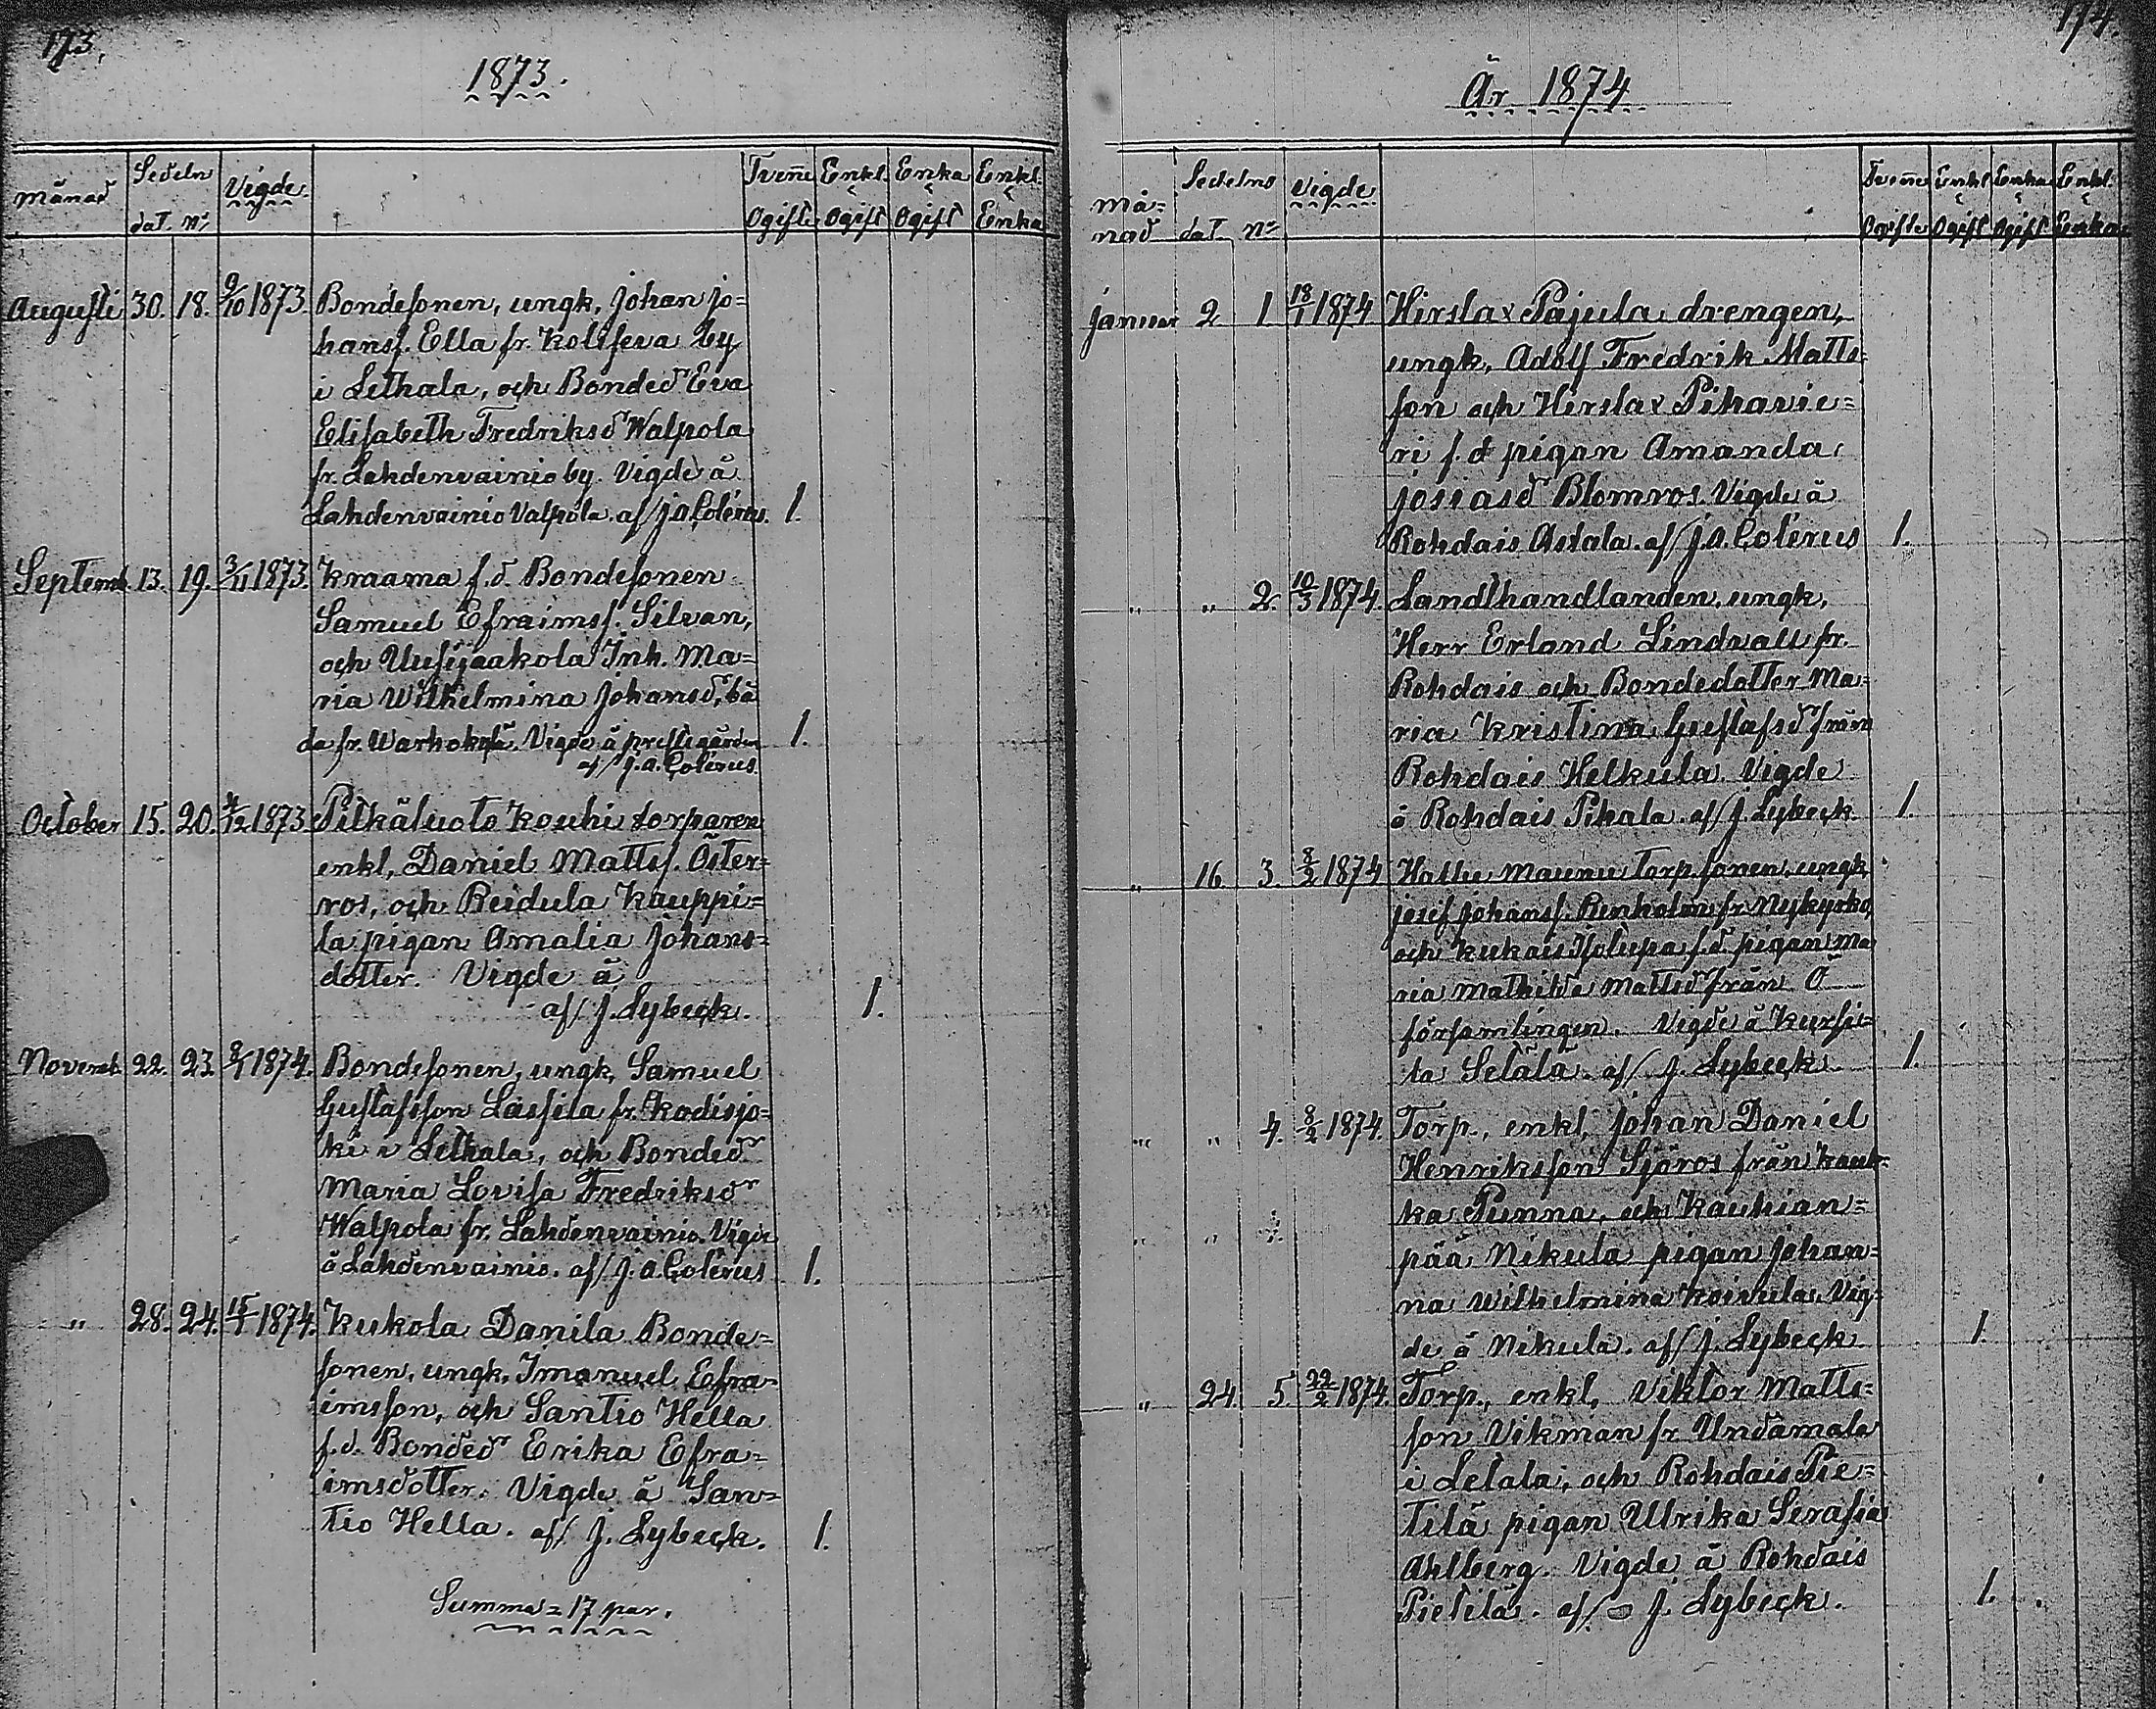 173.
1873.
Månad Sedeln dat. No Vigde Tvenne Ogifte Enkl. & Ogift Enka & Ogift Enkl. & Enka
Augusti 30. 18. 9/10 1873. Bondesonen, ungk, Johan Jo=
hanss. Ella fr. Koliseva by
i Lethala, och Bonded Eva
Elisabeth Fredriksd Walpola
fr. Lahdenvainio by. Vigde å
Lahdenvainio Valpola. af J.A. Colérus. 1.
Septemb. 13. 19. 3/11 1873. Kraama f.d. Bondesonen
Samuel Efraimss. Silvan,
och Uusijaakola Inh. Ma=
ria Wilhelmina Johansd, bå
da fr. Warhokylä. Vigde å prestegården 1.
af J.A. Colérus.
October 15. 20. 4/12 1873. Pitkäluoto Kouhi torparen
enkl, Daniel Mattss. Öster=
ros, och Reidula Kauppi=
la pigan Amalia Johans=
dotter. Vigde å
af J. Lybeck. 1.
Novemb. 22. 23. 8/1 1874. Bondesonen, ungk, Samuel
Gustafsson Lassila fr. Kodisjo=
ki i Lethala, och Bonded
Maria Lovisa Fredriksd
Walpola fr. Lahdenvainio. Vigde
å Lahdenvainio. af J.A. Colérus 1.
" 28. 24. 15/1 1874. Kukola Danila Bonde=
sonen, ungk, Imanuel Efra=
imsson, och Santio Hella
f.d. Bonded Erika Efra=
imsdotter. Vigde å San=
tio Hella. af J. Lybeck. 1.
Summa = 17 par.
174.
År 1874
Må=nad Sedelns dat No Vigde Tvenne Ogifte Enkl & Ogift Enka & Ogift Enkl. & Enka
Januar 2 1 18/1 1874 Hirslax Pajula drengen,
ungk, Adolf Fredrik Matts=
son och Hirslax Pihavie=
ri f.d pigan Amanda
Josiasd Blomros. Vigde å
Rohdais Astala. af J.A. Colérus 1.
" " 2. 10/3 1874. Landthandlanden, ungk,
Herr Erland Lindvall fr.
Rohdais och Bondedotter Ma=
ria Kristina Gustafsd från
Rohdais Helkula. Vigde
å Rohdais Pihala. af J. Lybeck. 1.
" 16. 3. 8/2 1874 Hallu Maunu Torp.sonen, ungk,
Josef Johanss. Renholm fr. Nykyrko,
och Kukais Isotupa f.d. pigan Ma
ria Mathilda Mattsd från Ö
församlingen. Vigde å Kursi=
la Setälä. af J. Lybeck. 1.
" " 4. 8/2 1874. Torp., enkl, Johan Daniel
Henriksson Sjöros från
ka Punna, och Kauhian=
" "
pää Nikula pigan Johan=
na Wilhelmina Koivula. Vig=
de å Nikula. af J. Lybeck 1.
" 24. 5. 22/2 1874. Torp., enkl, Viktor Matts=
son Vikman fr. Undamala
i Letala, och Rohdais Pie=
tilä pigan Ulrika Serafia
Ahlberg. Vigde å Rohdais
Pietilä. af J. Lybeck. 1.